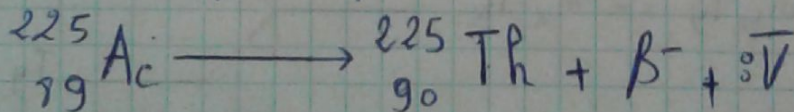 ²²⁵₈₉Ac ⟶ ²²⁵₉₀Th + β⁻ + ⁰₀V̅